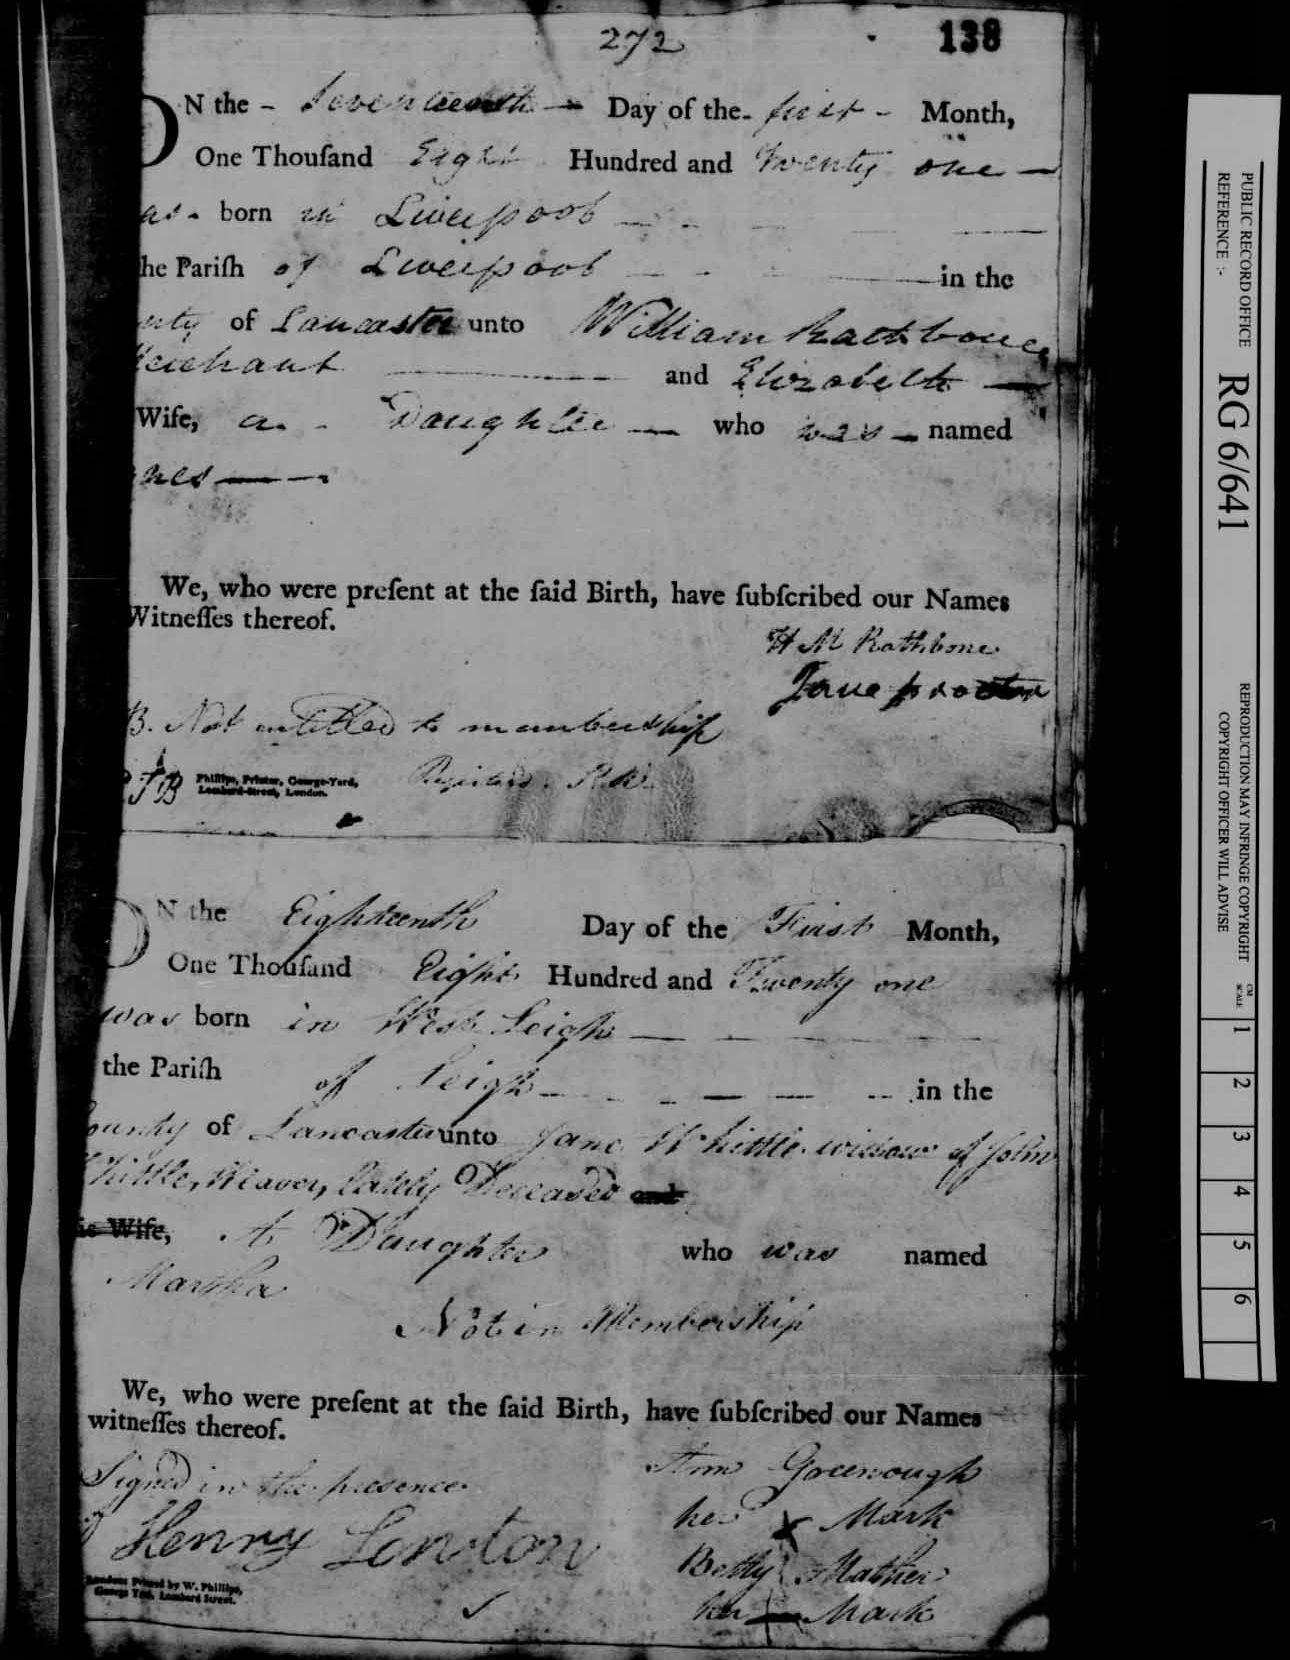 272 138
ON the - Seventeenth - Day of the - first - Month,
One Thouſand Eight Hundred and Twenty one -
as - born in Liverpool
he Pariſh of Liverpool in the
nty of Lancaster unto William Rathbone
erchant and Elizabeth
Wife, a - Daughter - who was - named
gnes
We, who were preſent at the ſaid Birth, have ſubſcribed our Names
Witneſſes thereof.
H M Rathbone
Jane Proctor
B. Not entitled to membership
Phillips, Printer, George-Yard,
Lombard-Street, London.
ON the Eighteenth Day of the First Month,
One Thouſand Eight Hundred and Twenty one
was born in West Leigh
the Pariſh of Leigh in the
ounty of Lancaster unto Jane Whittle widow of John
hittle, Weaver, lately Deceased and
is Wife, A Daughter who was named
Martha
Not in Membership
We, who were preſent at the ſaid Birth, have ſubſcribed our Names
witneſſes thereof.
Signed in the presence
Ann Greenough
her x Mark
Henry Lowton
Betty Mather
her Mark
London: Printed by W. Phillips,
George Yard, Lombard Street.
PUBLIC RECORD OFFICE
REFERENCE :-
RG 6/641
REPRODUCTION MAY INFRINGE COPYRIGHT
COPYRIGHT OFFICER WILL ADVISE
CM
SCALE
1 2 3 4 5 6